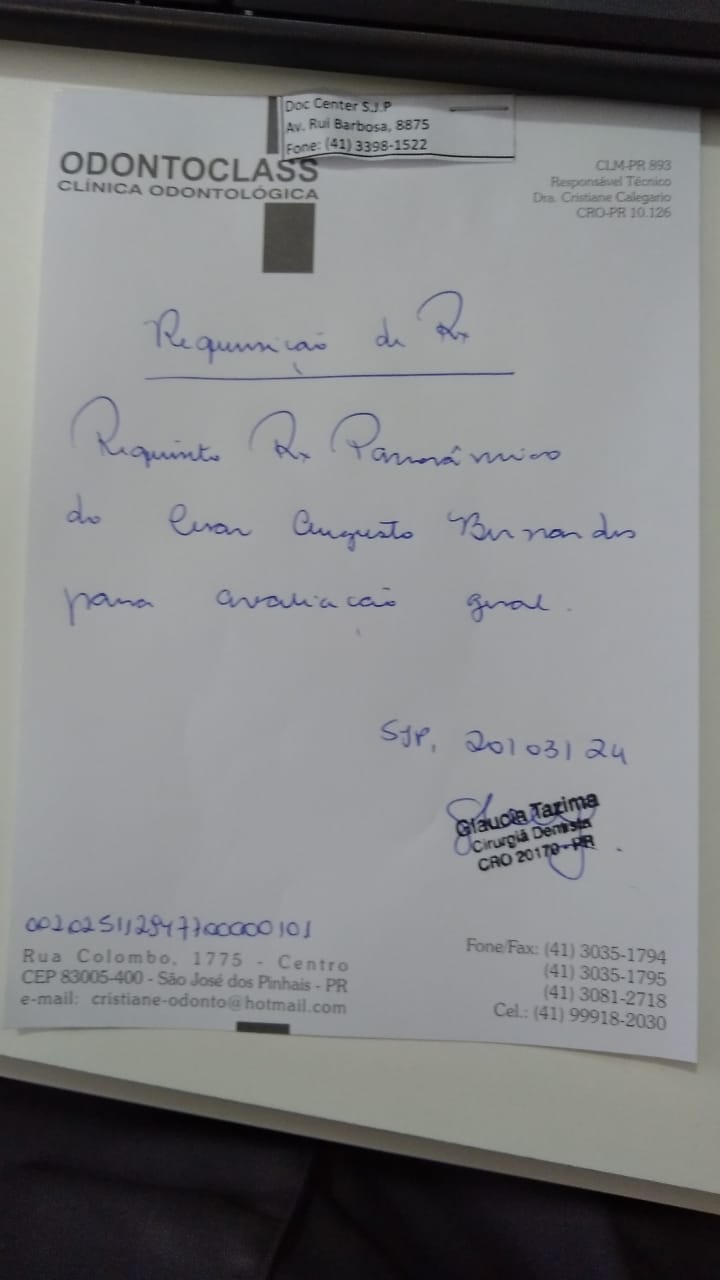 Doc Center S.J.P
Av. Rui Barbosa, 8875
Fone: (41) 3398-1522
ODONTOCLASS
CLÍNICA ODONTOLÓGICA
CLM-PR 893
Responsável Técnico
Dra. Cristiane Calegario
CRO-PR 10.126
Requisição de Rx
Requisito Rx Panorâmico
do Cesar Augusto Bernardes
para avaliação geral.
SJP, 20/03/24
Glaucia Tazima
Cirurgiã Dentista
CRO 20170-PR
Rua Colombo, 1775 - Centro
CEP 83005-400 - São José dos Pinhais - PR
e-mail: cristiane-odonto@hotmail.com
Fone/Fax: (41) 3035-1794
(41) 3035-1795
(41) 3081-2718
Cel.: (41) 99918-2030